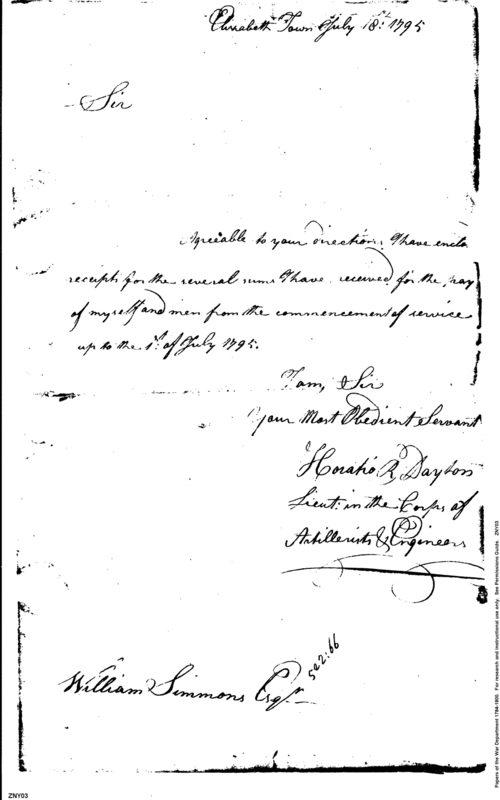 Elizabeth Town July 18th 1795
Sir
Agreeable to your directions I have enclo
receipts for the several sums I have received for the pay
of myself and men from the commencement of service
up to the 1st of July 1795.
I am, Sir
Your Most Obedient Servant
Horatio R Dayton
Lieut: in the Corps of
Artillerists & Engineers
522:66
William Simmons Esqr
ZNY03
Papers of the War Department 1784-1800. For research and instructional use only. See Permissions Guide. ZNY03